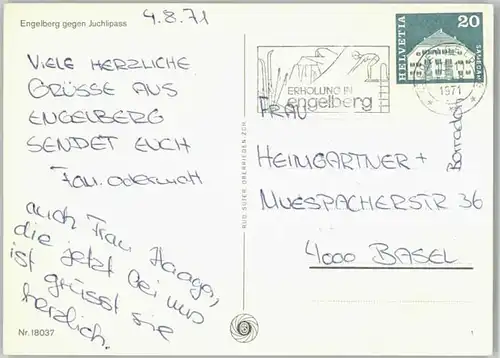 Engelberg gegen Juchlipass
4.8.71
VIELE HERZLICHE
GRÜSSE AUS
ENGELBERG
SENDET EUCH
Fam. Odermatt
auch Frau Haaga,
die jetzt bei uns
ist grüsst sie
herzlich.
Nr. 18037
RUD. SUTER, OBERRIEDEN-ZCH.
ERHOLUNG IN
engelberg
1971
HELVETIA
20
SAMEDAN
FRAU
HEIMGARTNER +
MUESPACHERSTR 36
4000 BASEL
1